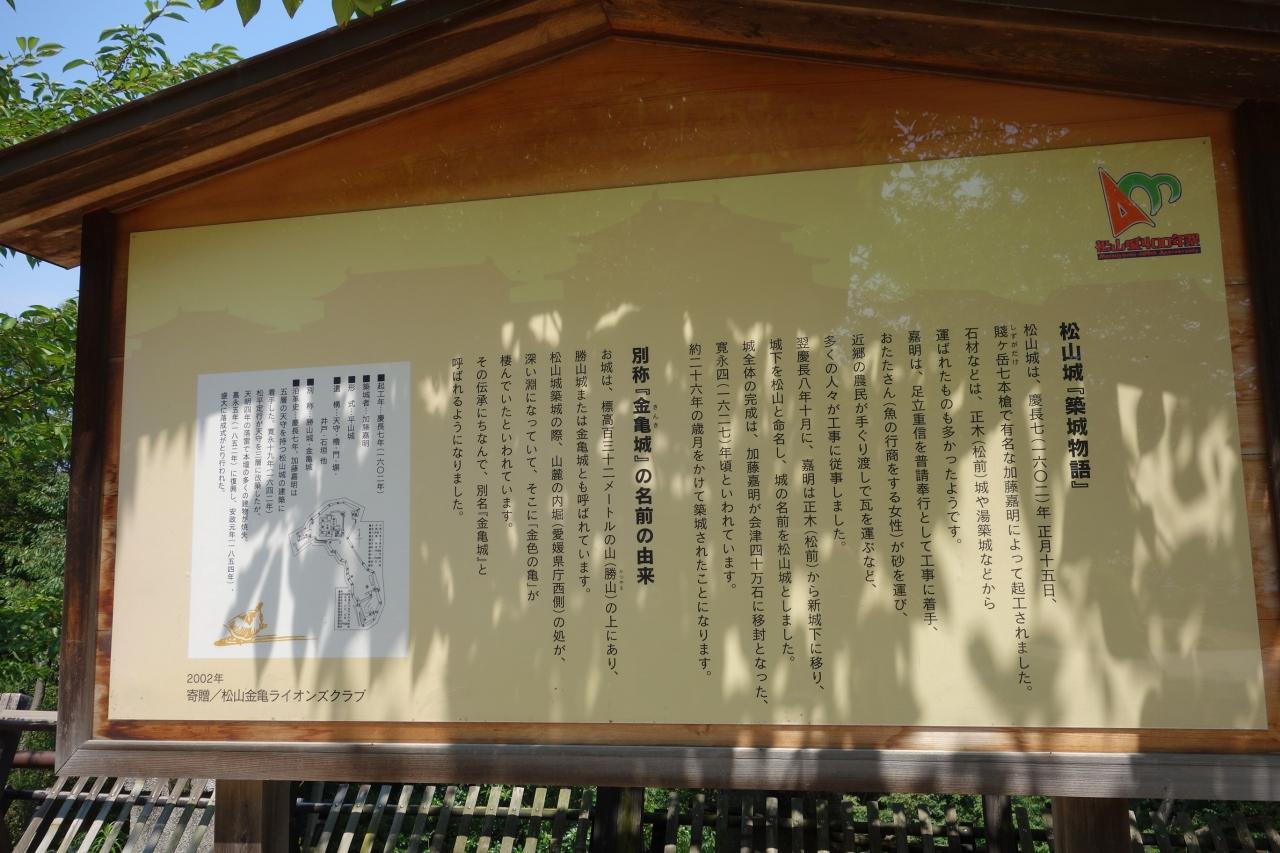 松山城400年祭
松山城『築城物語』
松山城は、慶長七(一六〇二)年 正月十五日、
賤ヶ岳七本槍で有名な加藤嘉明によって起工されました。
しずがたけ
石材などは、正木(松前)城や湯築城などから
運ばれたものも多かったようです。
嘉明は、足立重信を普請奉行として工事に着手、
おたたさん(魚の行商をする女性)が砂を運び、
近郷の農民が手ぐり渡しで瓦を運ぶなど、
多くの人々が工事に従事しました。
翌慶長八年十月に、嘉明は正木(松前)から新城下に移り、
城下を松山と命名し、城の名前を松山城としました。
城全体の完成は、加藤嘉明が会津四十万石に移封となった、
寛永四(一六二七)年頃といわれています。
約二十六年の歳月をかけて築城されたことになります。
別称『金亀城』の名前の由来
きんき
お城は、標高百三十二メートルの山(勝山)の上にあり、
かつやま
勝山城または金亀城とも呼ばれています。
松山城築城の際、山麓の内堀(愛媛県庁西側)の処が、
深い淵になっていて、そこに「金色の亀」が
棲んでいたといわれています。
その伝承にちなんで、別名『金亀城』と
呼ばれるようになりました。
■起工年・慶長七年(一六〇二年)
■築城者・加藤嘉明
■形 式・平山城
■遺 構・天守・櫓・門・塀・
井戸・石垣 他
■別 称・勝山城・金亀城
■沿革史・慶長七年、加藤嘉明は
五層の天守を持つ松山城の建築に
着手した。寛永十九年(一六四二年)
松平定行が天守を三層に改築したが、
天明四年の落雷で本壇の多くの建物が焼失。
嘉永五年(一八五二年)に復興し、安政元年(一八五四年)、
盛大に落成式がとり行われた。
2002年
寄贈/松山金亀ライオンズクラブ